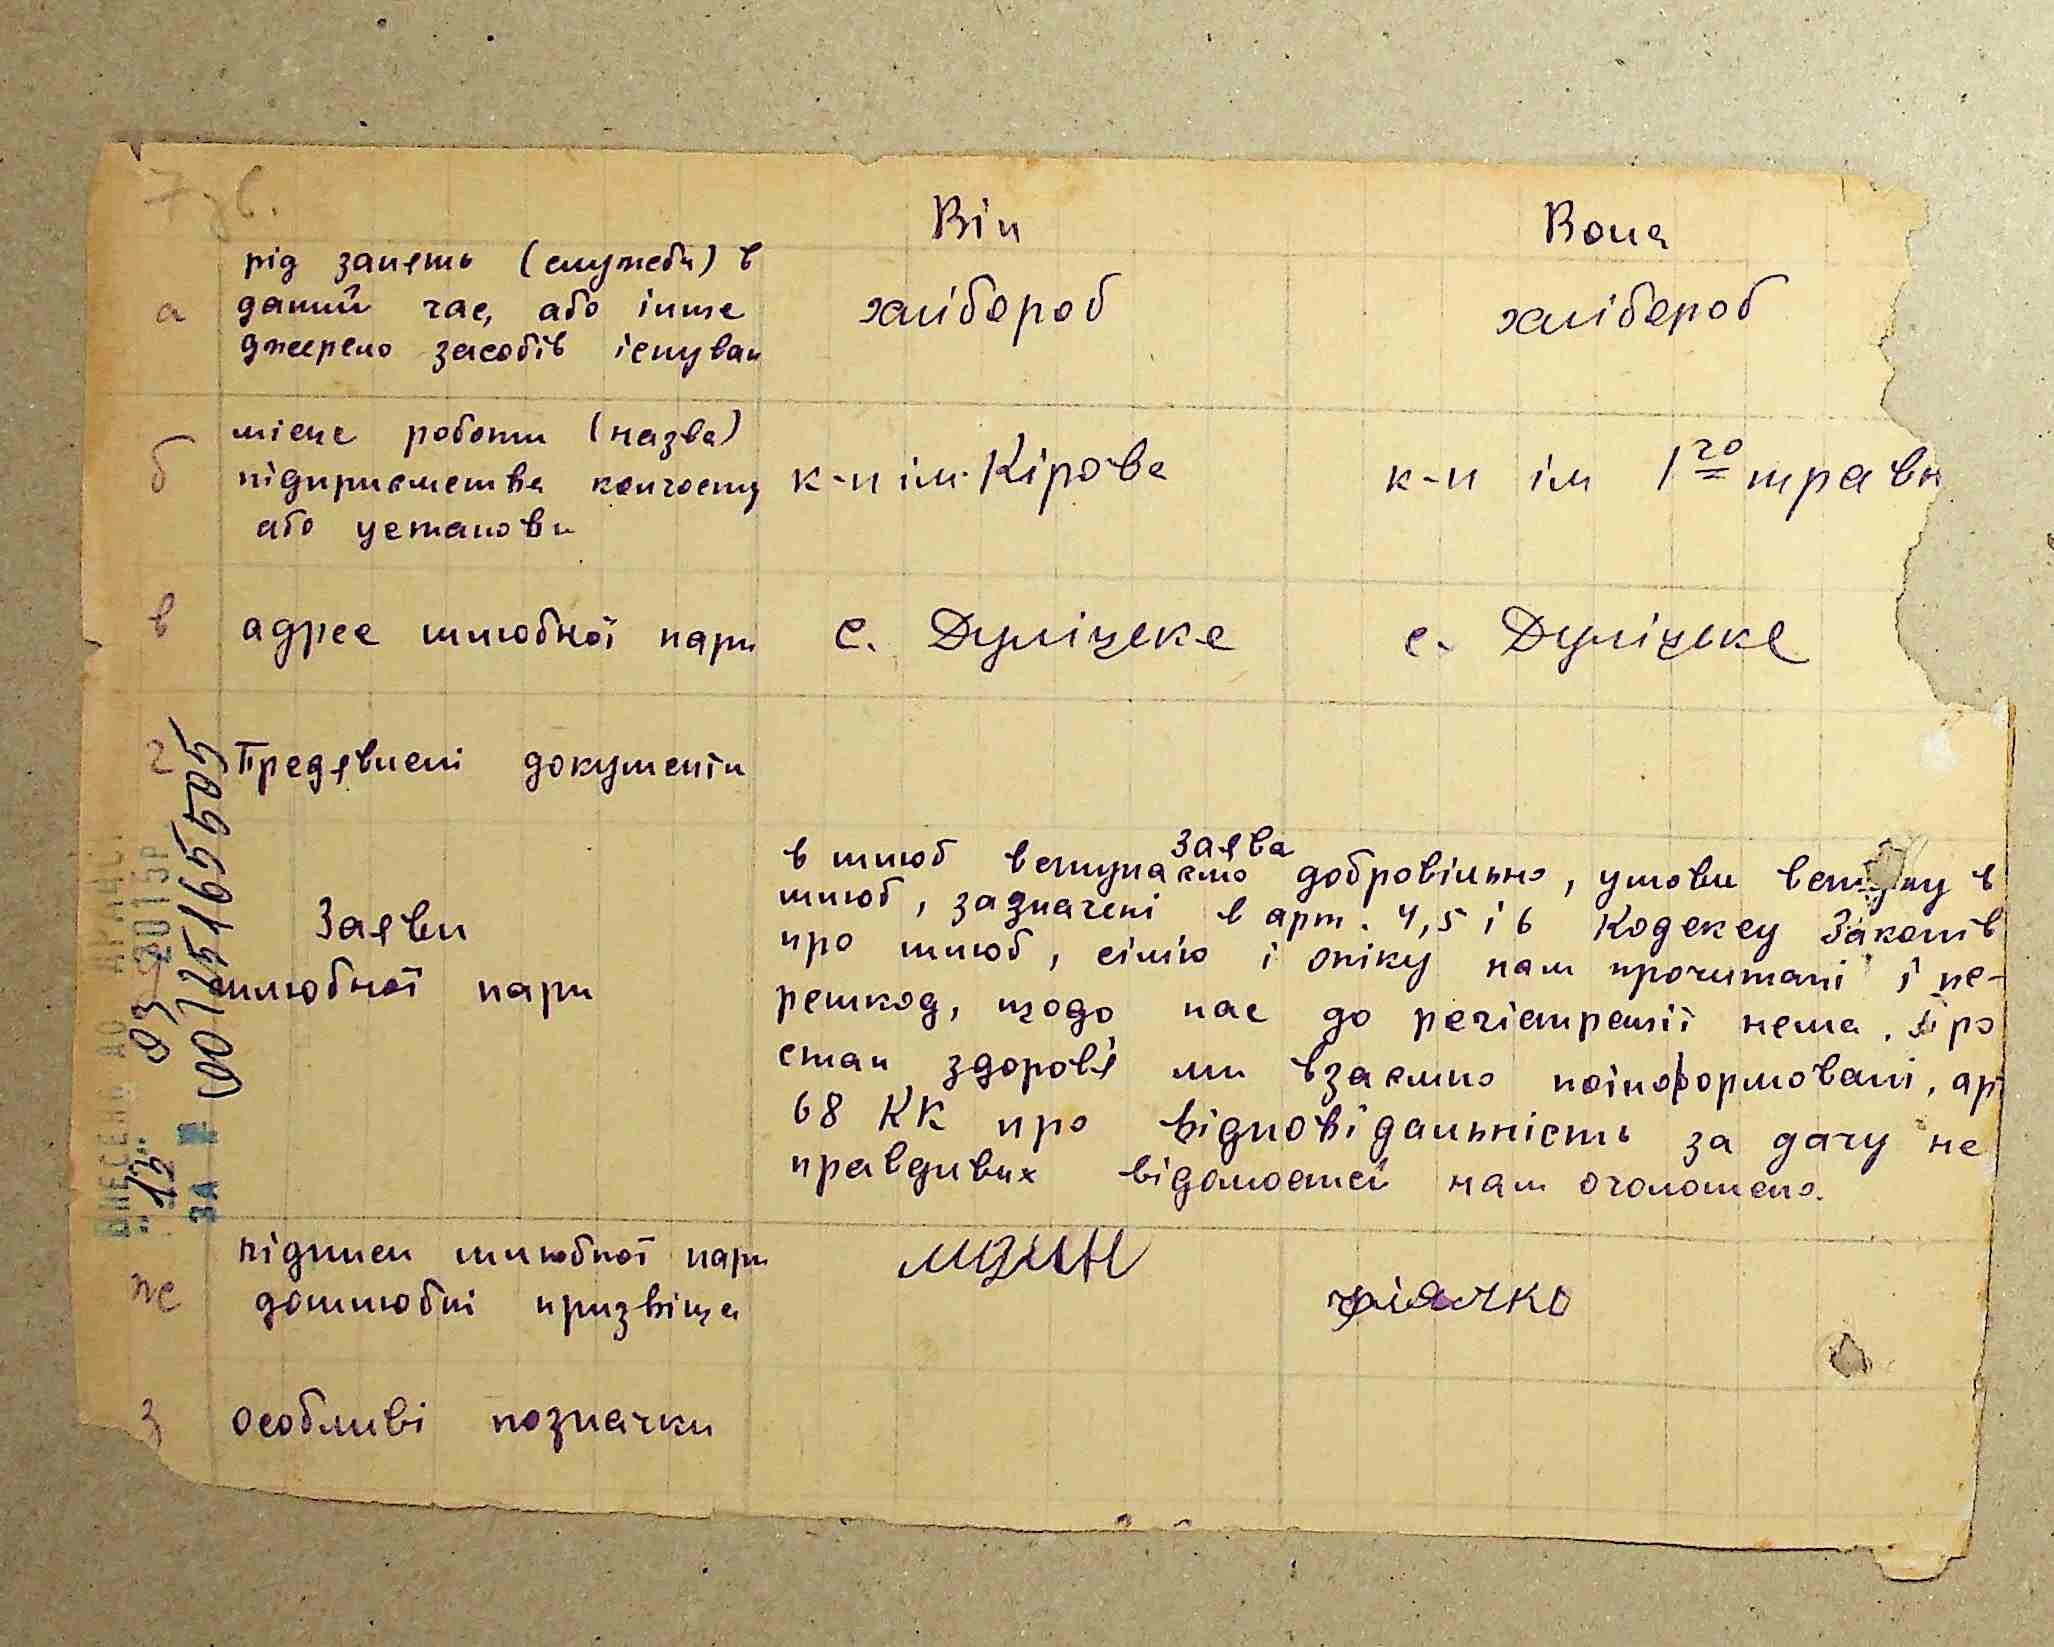 7 зв.
Він
Вона
а
рід занять (служби) в
даний час, або інше
джерело засобів існуван
хлібороб
хлібороб
б
місце роботи (назва)
підприємства колгоспу
або установи
к-п ім. Кірова
к-п ім 1го травн
в
адрес шлюбної пари
с. Дуліцьке
с. Дуліцьке
г
Предявлені документи
Заяви
шлюбної пари
Заява
в шлюб вступаємо добровільно, умови вступу в
шлюб, зазначені в арт. 4,5 і 6 Кодексу Законів
про шлюб, сімю і опіку нам прочитані і пе-
решкод, щодо нас до регістрації нема. Про
стан здоровя ми взаємно поінформовані, ар
68 КК про відповідальність за дачу не
правдивих відомостей нам оголошено.
ж
підписи шлюбної пари
дошлюбні призвіща
з
особливі позначки
ВНЕСЕНО ДО ДРАЦС
"13" 03 2015р
ЗА № 00125165505